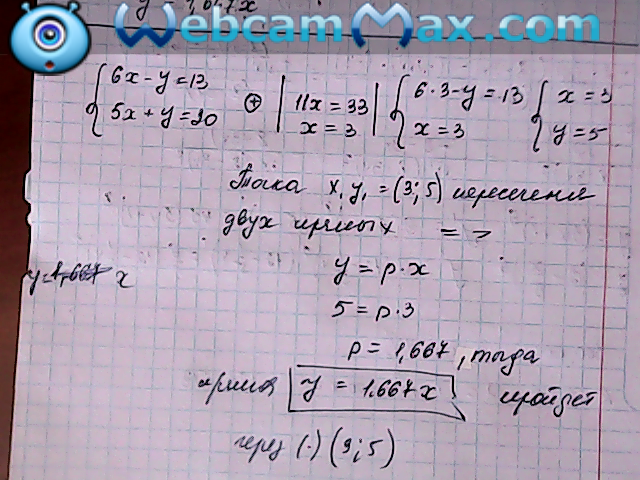 y = 1,667x
WebcamMax.com
{ 6x - y = 13 5x + y = 20 ⊕ | 11x = 33 x = 3 | { 6·3 - y = 13 x = 3 { x = 3 y = 5
Точка x, y, = (3; 5) пересечения
двух прямых =>
y = p·x
y=1,667 x
5 = p·3
p = 1,667, тогда
прямая y = 1.667x пройдет
через (·) (3; 5)